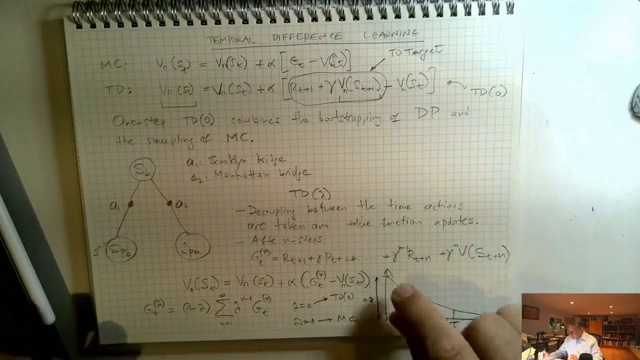 TEMPORAL DIFFERENCE LEARNING
TD Target
MC: Vπ(St) = Vπ(St) + α [Gt − V(St)]
TD: Vπ(St) = Vπ(St) + α [Rt+1 + γVπ(St+1) − Vπ(St)] TD(0)
One-step TD(0) combines the bootstrapping of DP and
the sampling of MC.
S6
a1: Brooklyn bridge
a2: Manhattan bridge
a1 a2
TD(λ)
- Decoupling between the time actions
are taken and value function updates.
S'
- After n-steps
Gt(n) = Rt+1 + γRt+2 ... + γ Rt+n + γⁿ V(St+n)
Vπ(St) = Vπ(St) + α (Gt(n) − Vπ(St))
Gt(λ) = (1−λ) Σ n=1 ∞ λⁿ⁻¹ Gt(n)
λ=0 → TD(0)
λ=1 → MC
T